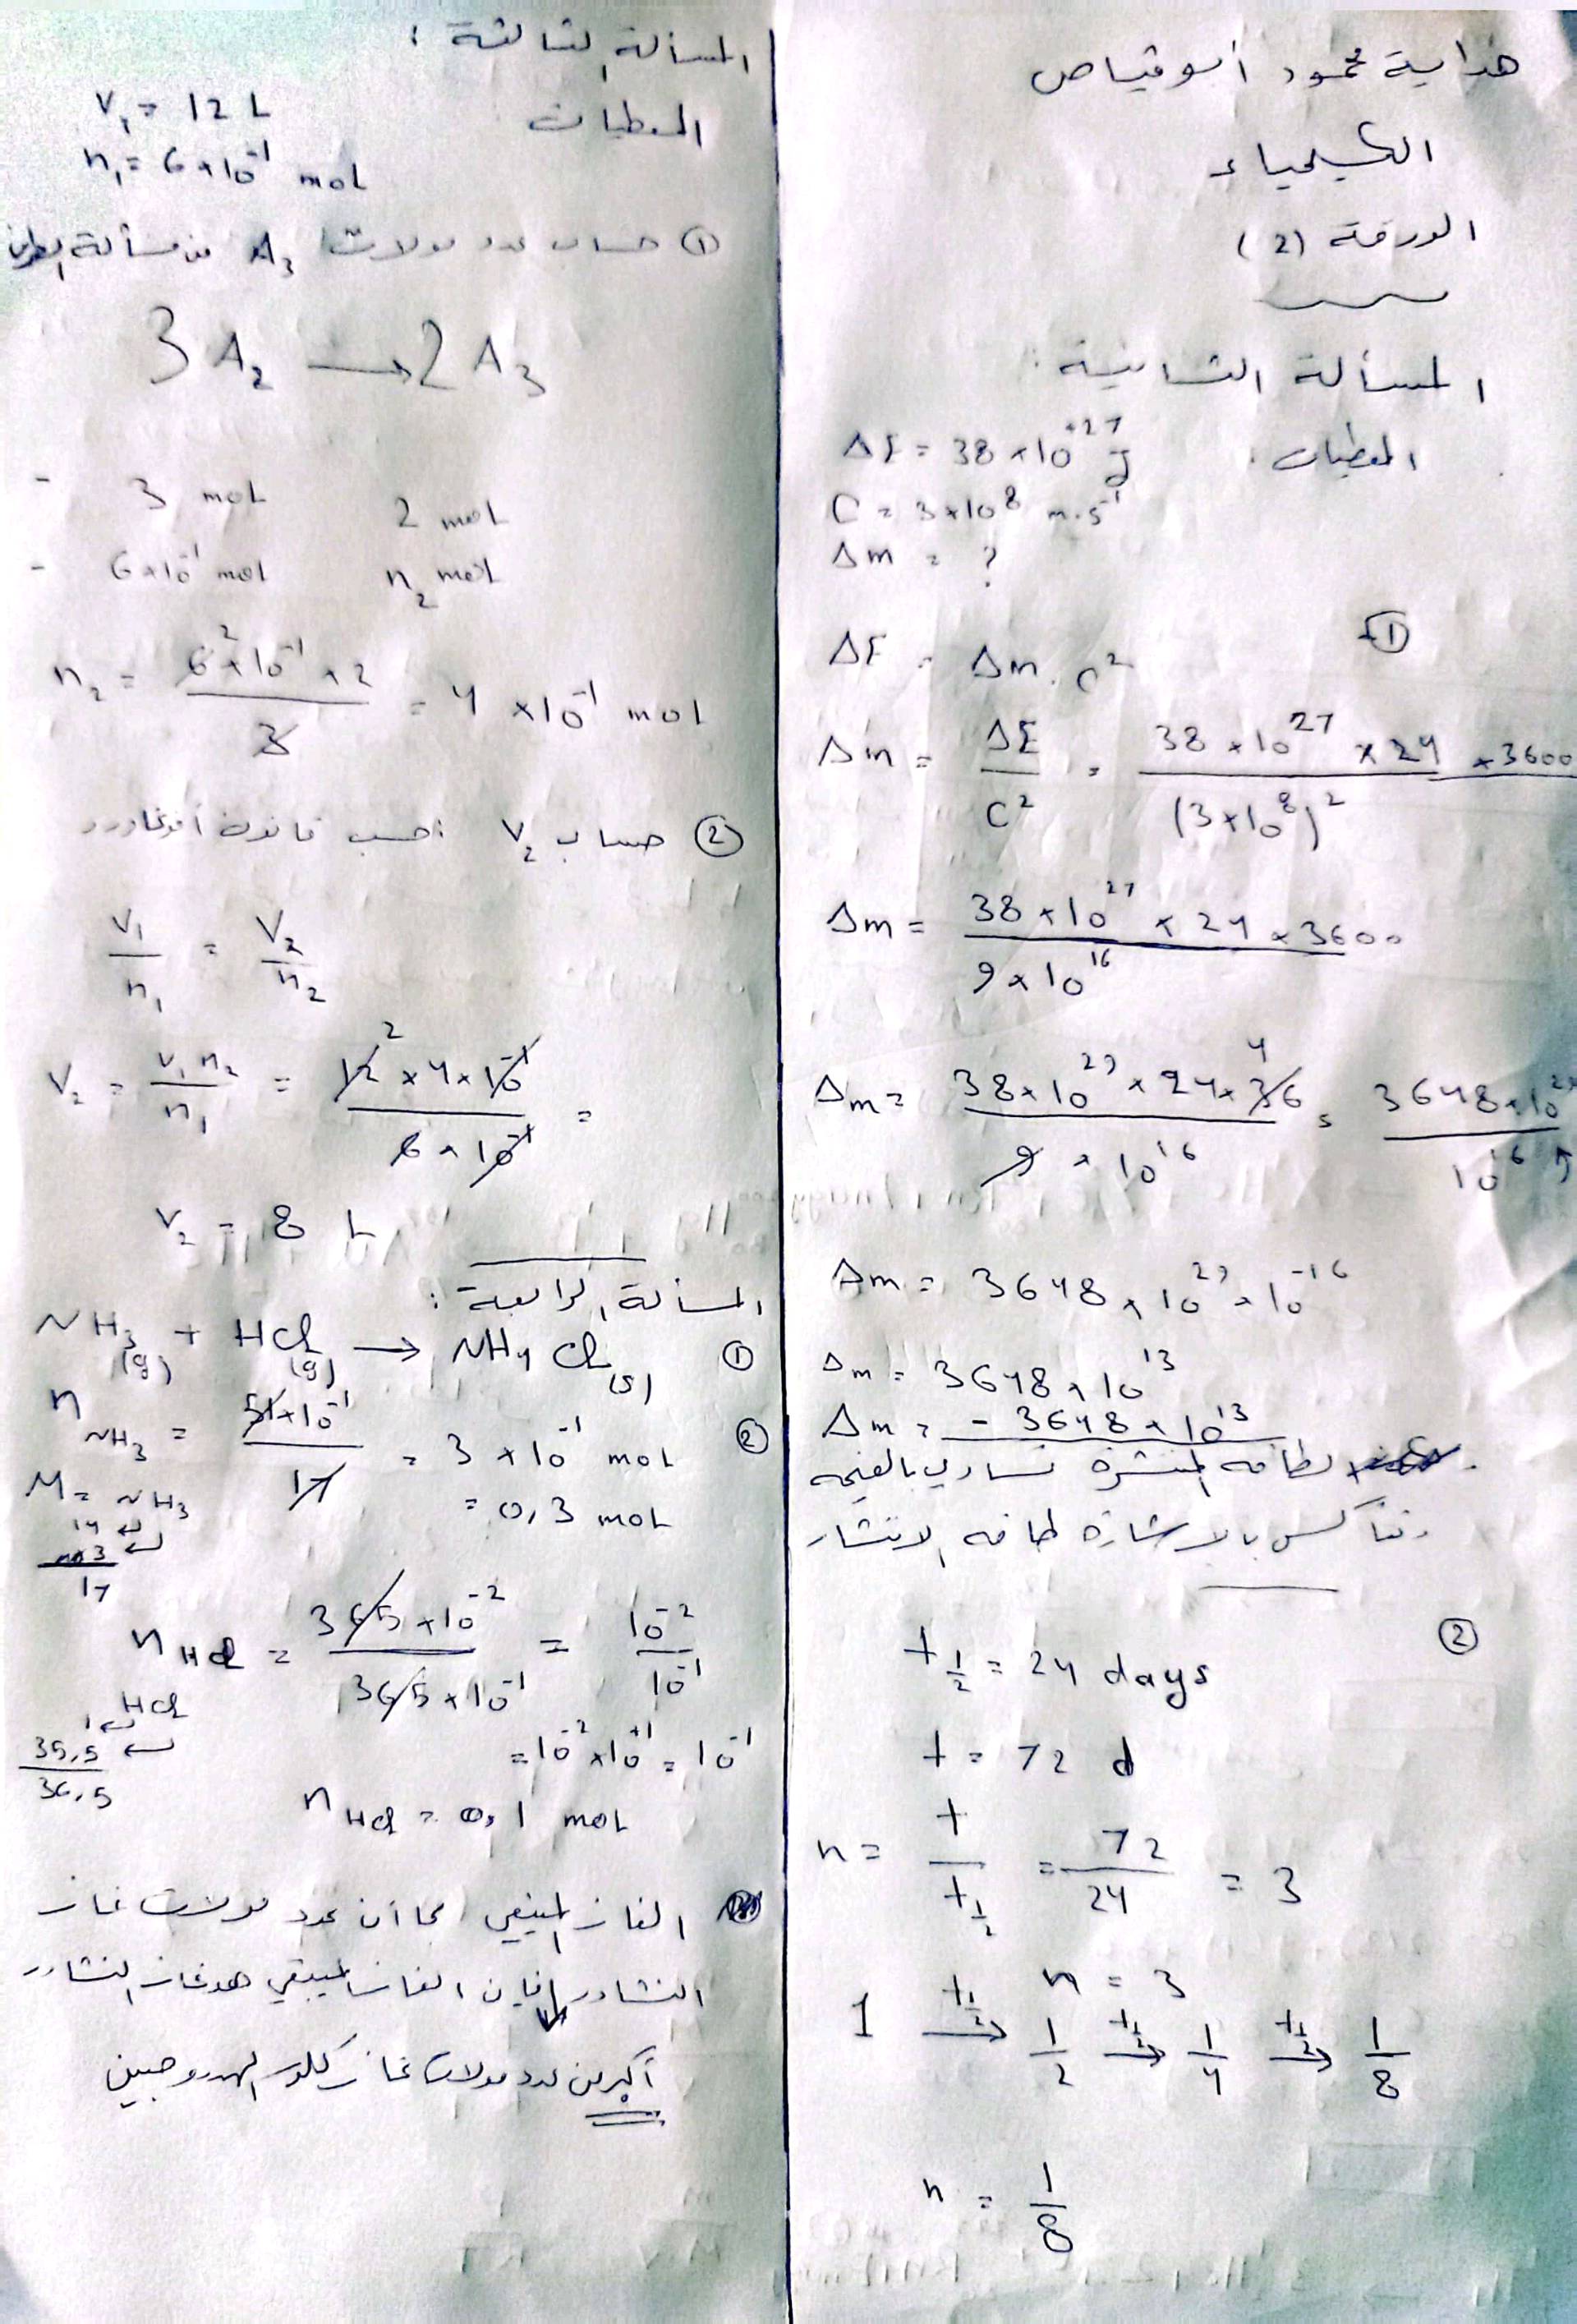 هداية محمود أبو قياص
الكيمياء
الورقة (2)
المسألة الثانية:
المعطيات:
ΔE = 38 × 10^+27 J
C = 3×10^8 m.s^-1
Δm = ?
①
ΔE = Δm . C^2
Δm = ΔE / C^2 = 38 × 10^27 × 24 × 3600 / (3×10^8)^2
Δm = 38 × 10^27 × 24 × 3600 / 9 × 10^16
Δm = 38 × 10^29 × 24 × 36 / 9 × 10^16 = 3648 × 10^29 / 10^16
Δm = 3648 × 10^29 × 10^-16
Δm = 3648 × 10^13
Δm = - 3648 × 10^13
الطاقة المنتشرة تساوي بالقيمة
وتعاكس بالاشارة طاقة الانتشار
②
t 1/2 = 24 days
t = 72 d
n = t / t 1/2 = 72 / 24 = 3
n = 3
1 →(t 1/2) 1/2 →(t 1/2) 1/4 →(t 1/2) 1/8
n = 1/8
المسألة الثالثة:
المعطيات
V1 = 12 L
n1 = 6×10^-1 mol
① حساب عدد مولات A3 من مسألة
3 A2 → 2 A3
3 mol 2 mol
6×10^-1 mol n2 mol
n2 = 6×10^-1 × 2 / 3 = 4 × 10^-1 mol
② حساب V2 حسب قانون أفوغادرو:
V1 / n1 = V2 / n2
V2 = V1 n2 / n1 = 12 × 4 × 10^-1 / 6 × 10^-1 =
V2 = 8 L
المسألة الرابعة:
① NH3 (g) + HCl (g) → NH4 Cl (s)
② n NH3 = 51×10^-1 / 17 = 3 × 10^-1 mol
= 0,3 mol
M = NH3
14
3
17
n HCl = 365 × 10^-2 / 365 × 10^-1 = 10^-2 / 10^-1
HCl
1
35,5
36,5
= 10^-2 × 10^+1 = 10^-1
n HCl = 0,1 mol
الغاز المتبقي بما أن عدد مولات غاز
النشادر فإن الغاز المتبقي هو غاز النشادر
أكبر من عدد مولات غاز كلور الهيدروجين